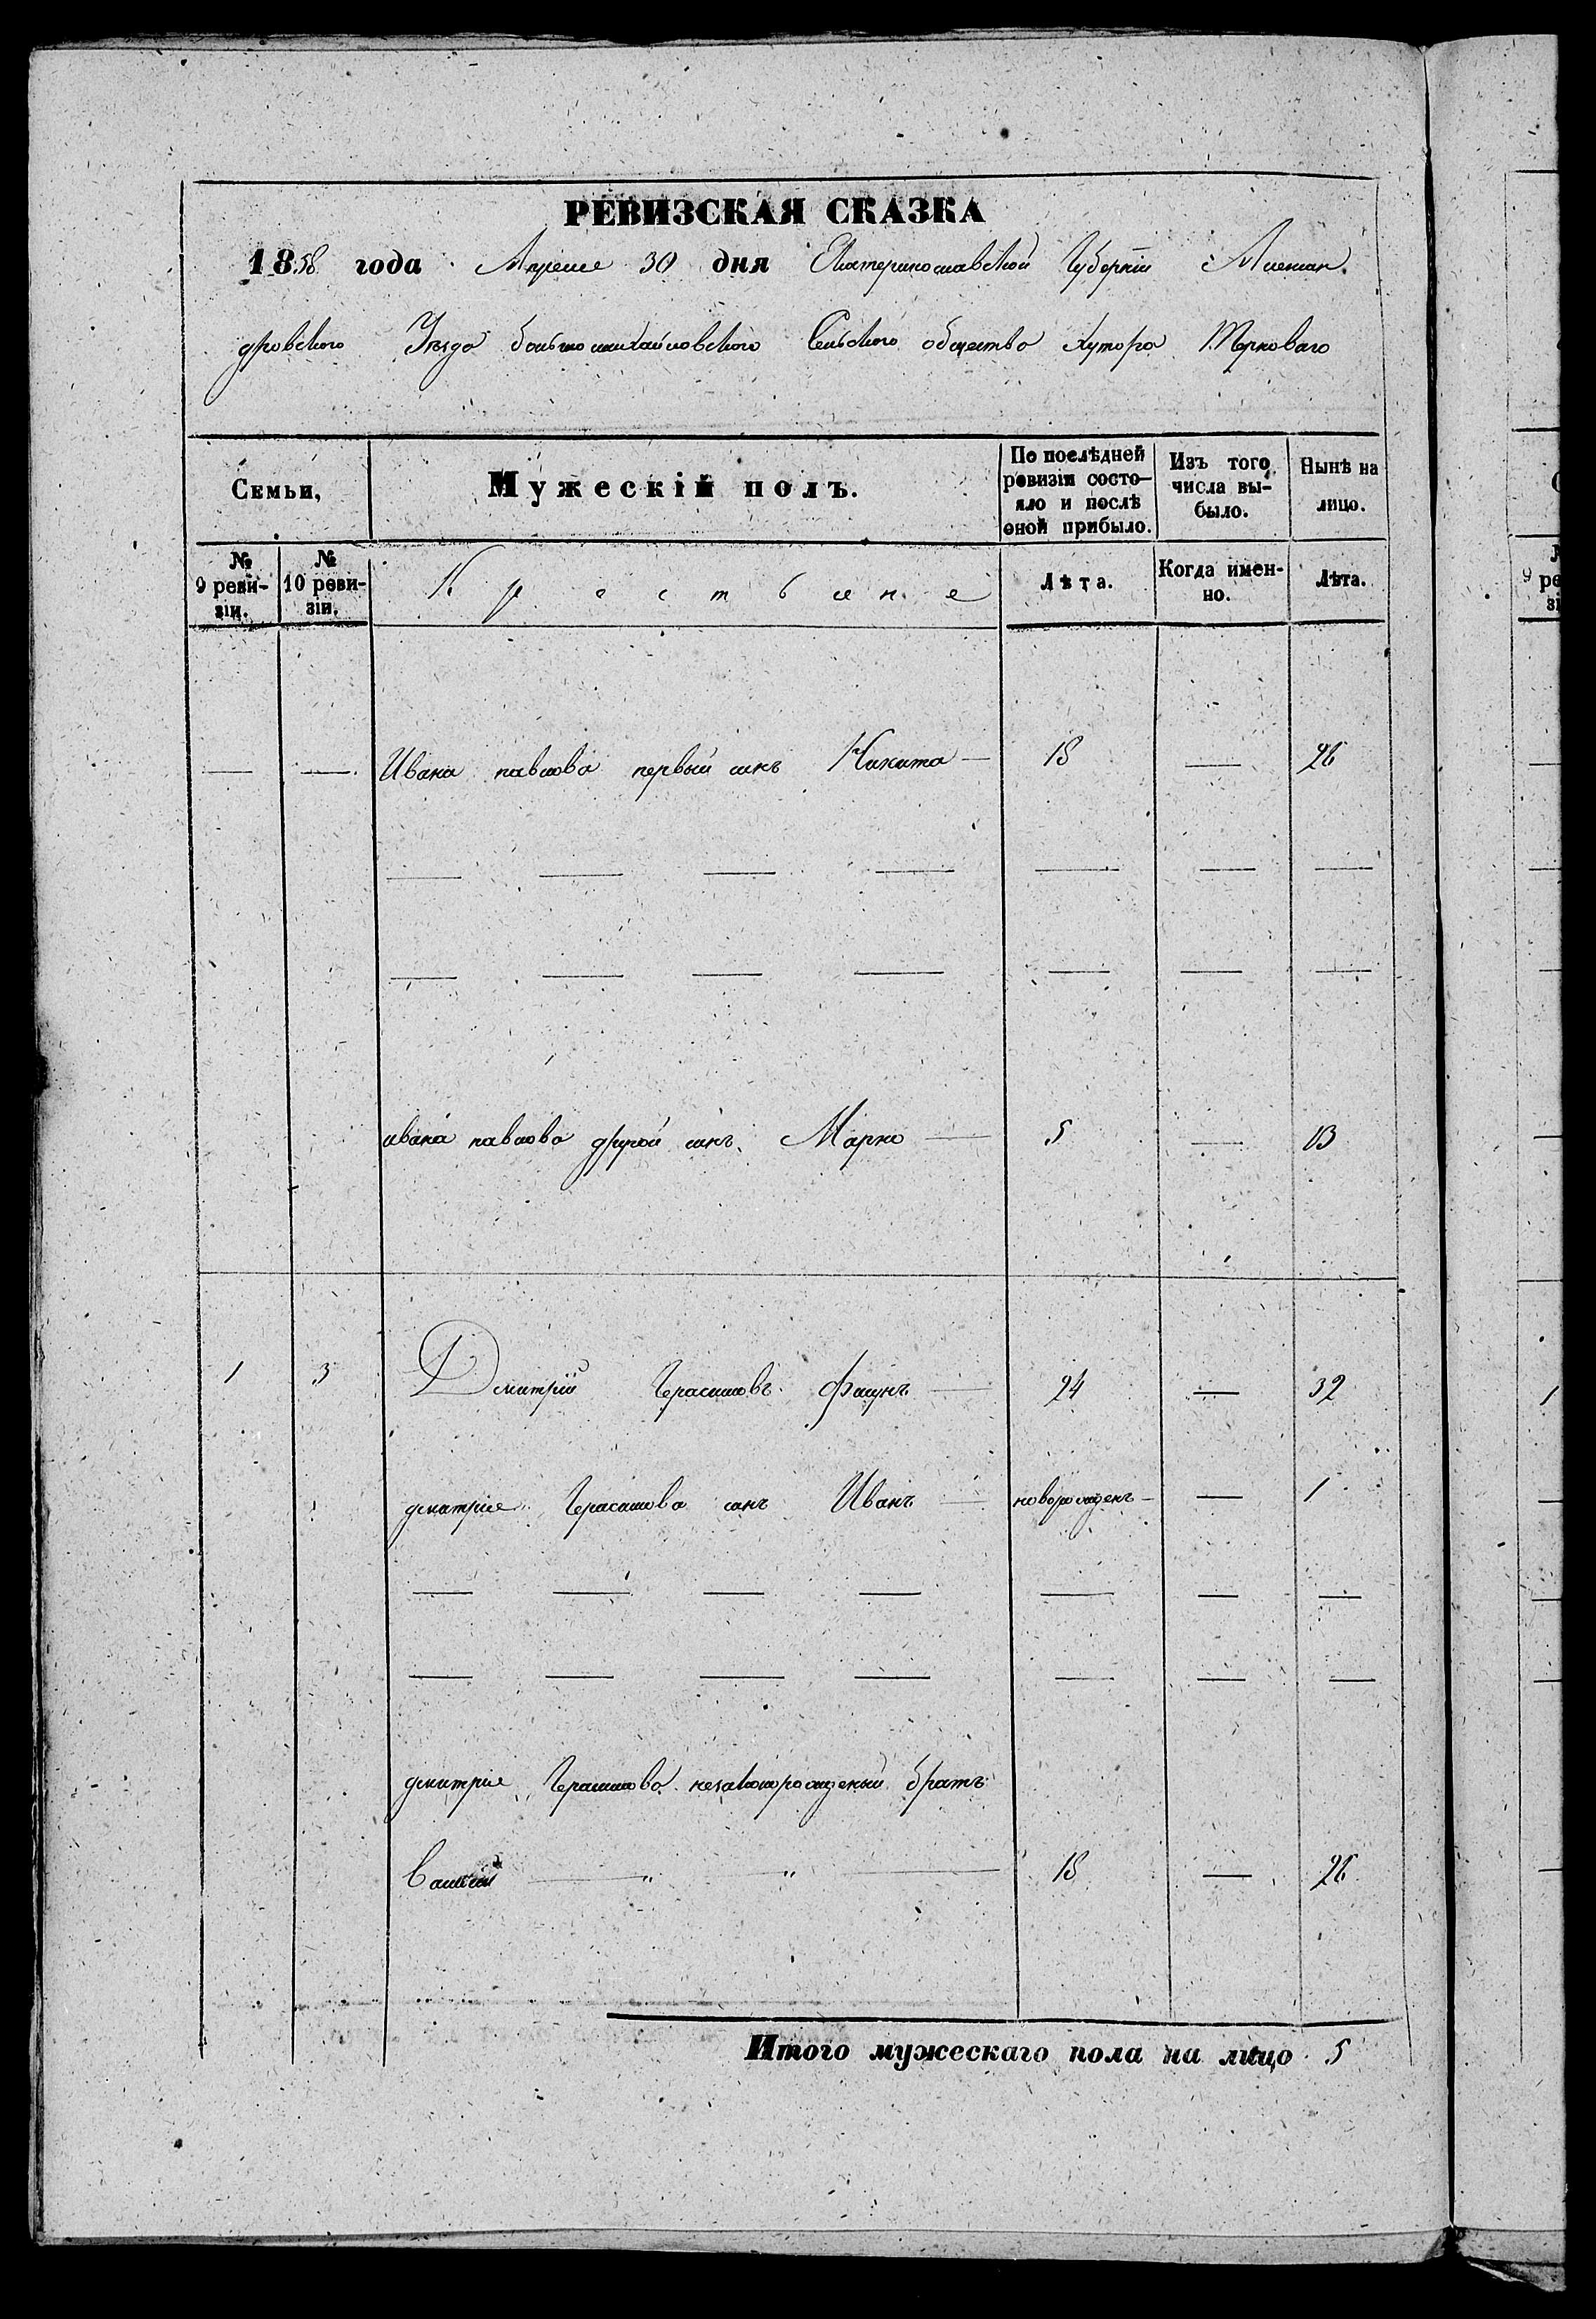 РЕВИЗСКАЯ СКАЗКА
1858 года Апреля 30 дня Екатеринославской Губернїи Алексан
дровского Уезда большомихайловского Сельского общества Хутора Терноваго
Семьи,
Мужескій полъ.
По послѣдней ревизіи состо-
яло и послѣ оной прибыло.
Изъ того числа вы-
было.
Нынѣ на лицо.
№ 9 реви-
зіи.
№ 10 реви-
зіи.
Крестьяне
Лѣта.
Когда имен-
но.
Лѣта.
— — Ивана павлова первый сынъ Никита — 18 — 26
— — — — — — —
— — — — — — —
ивана павлова другой сынъ Марко — 5 — 13
1 3 Дмитрій Герасимовъ — 24 — 32
дмитрія Герасимова сынъ Иванъ — новорожденъ — — 1
— — — — — — —
— — — — — — —
дмитрія Герасимова незаконорожденый братъ
Василій — " " — 18 — 26
Итого мужескаго пола на лицо 5
9
№
1